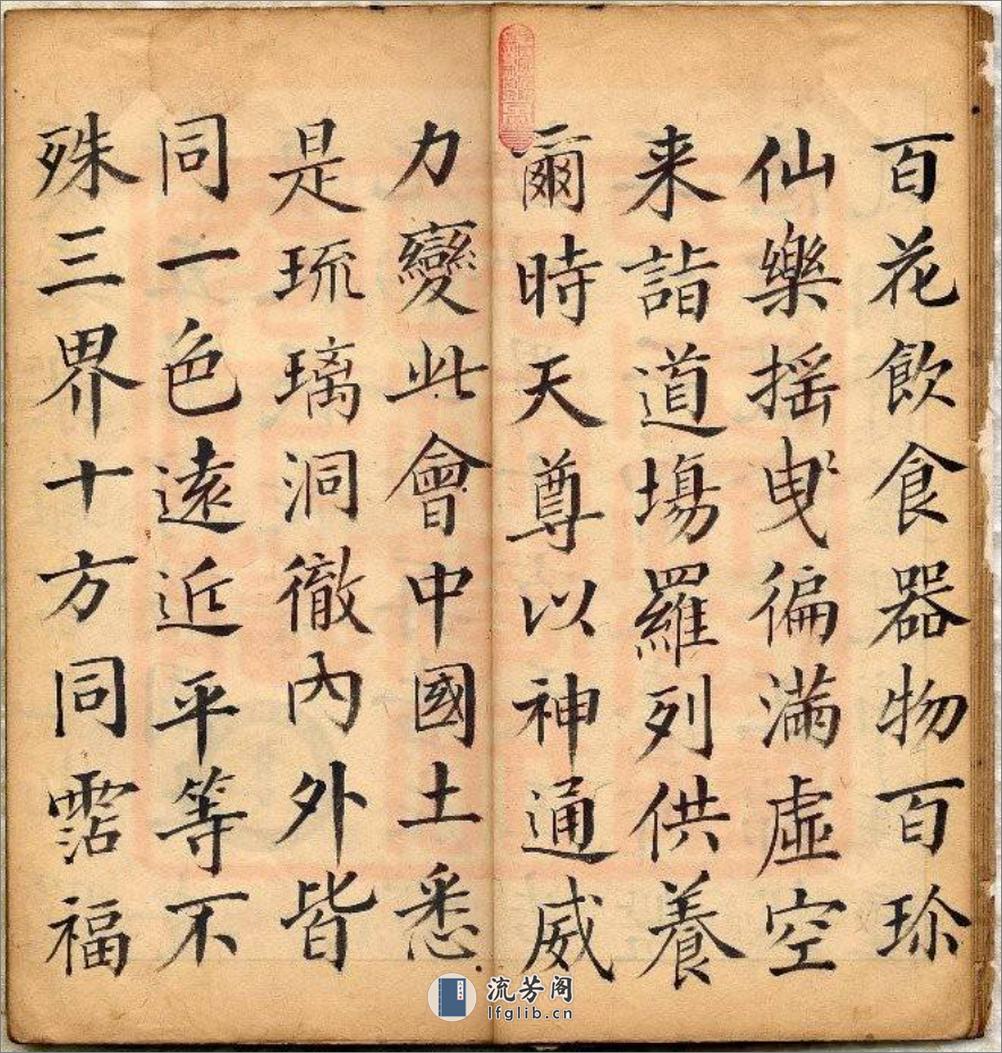 百花飲食器物百珎
仙樂揺曳徧滿虛空
来詣道塲羅列供養
爾時天尊以神通威
力變此會中國土悉
是琉璃洞徹內外皆
同一色遠近平等不
殊三界十方同霑福
流芳阁
lfglib.cn